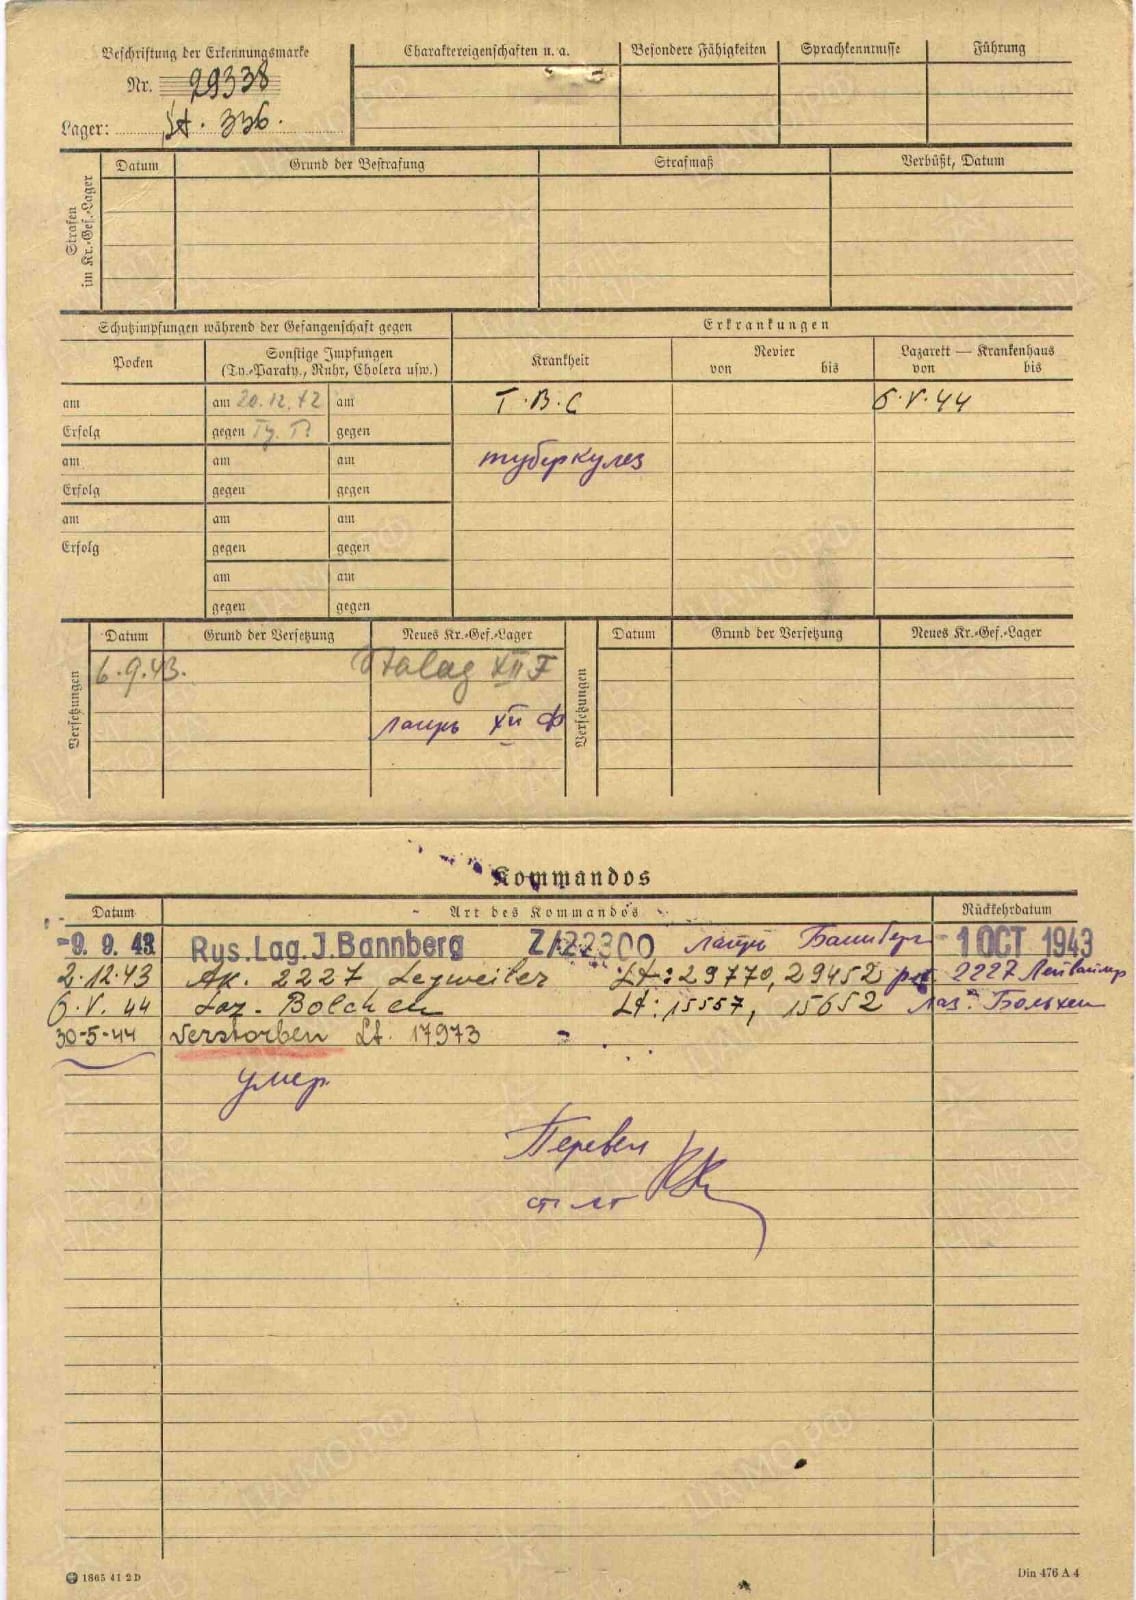 Beschriftung der Erkennungsmarke
Nr. 29338
Lager: St. 336.
Charaktereigenschaften u. a.
Besondere Fähigkeiten
Sprachkenntnisse
Führung
Strafen im Kr.-Gef.-Lager
Datum
Grund der Bestrafung
Strafmaß
Verbüßt, Datum
Schutzimpfungen während der Gefangenschaft gegen
Erkrankungen
Pocken
Sonstige Impfungen
(Ty.-Paraty., Ruhr, Cholera usw.)
Krankheit
Revier
von bis
Lazarett — Krankenhaus
von bis
am am 20.12.42 am T.B.C 6.V.44
Erfolg gegen Ty. gegen
am am am туберкулез
Erfolg gegen gegen
am am am
Erfolg gegen gegen
am am
gegen gegen
Versetzungen
Datum Grund der Versetzung Neues Kr.-Gef.-Lager
6.9.43. Stalag XII F
лагерь XII Ф
Versetzungen
Datum Grund der Versetzung Neues Kr.-Gef.-Lager
Kommandos
Datum Art des Kommandos Rückkehrdatum
-9. 9. 43 Rys. Lag. J. Bannberg Z/22300 лагерь Баннберг -1 OCT 1943
2.12.43 Ak. 2227 Leyweiler Lt: 29770, 29452 рк. 2227 Лейвайлер
6.V.44 Laz. Bolchen Lt: 15557, 15652 лаз. Больхен
30-5-44 verstorben Lt. 17973
умер
Перевел
ст лт
1865 41 2 D
Din 476 A 4